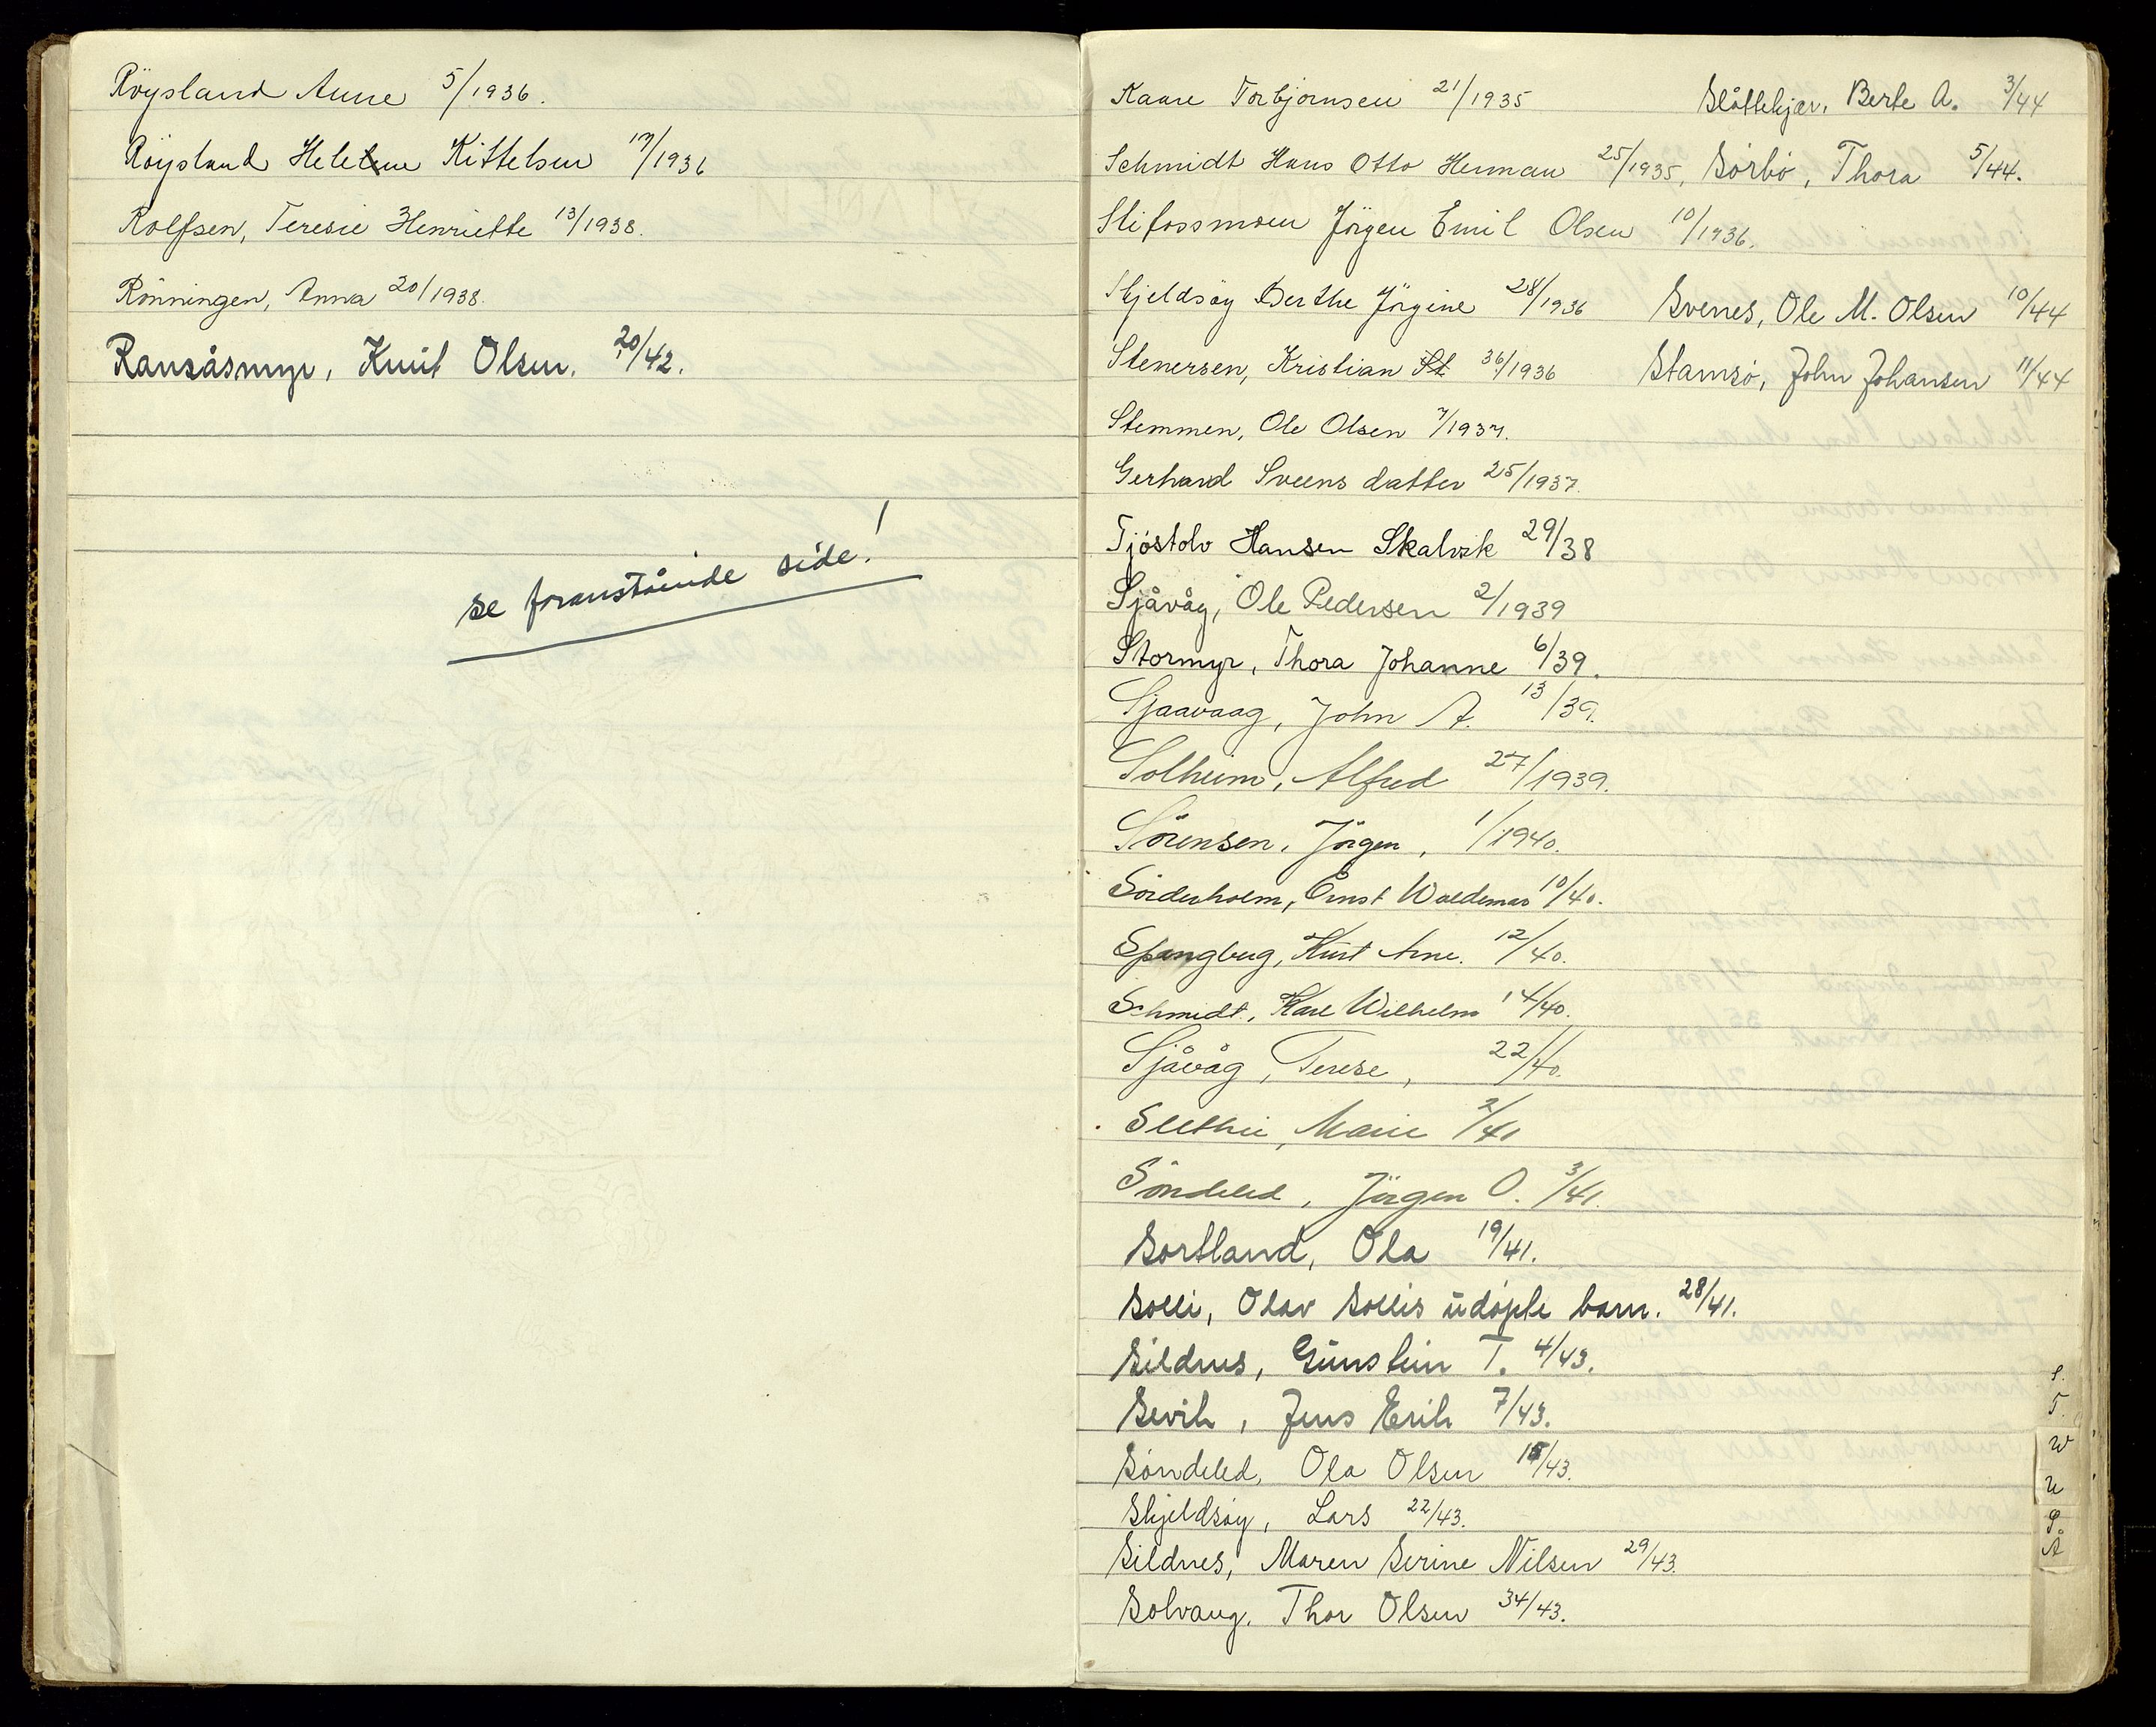 Röysland Anne 5/1936.
Röysland Helene Kittelsen 17/1936
Rolfsen, Teresie Henriette 13/1938.
Rönningen, Anna 20/1938.
Ransåsmyr, Knut Olsen. 20/42.
se foranstående side!
Kaare Torbjørnsen 21/1935
Schmidt Hans Otto Herman 25/1935,
Stifossmoen Jörgen Emil Olsen 10/1936.
Skjeldsöy Berthe Jörgine 28/1936
Stenersen, Kristian St 36/1936
Stemmen, Ole Olsen 7/1937.
Gerhard Sveens datter 25/1937.
Tjöstolv Hansen Skalvik 29/38
Sjåvåg, Ole Pedersen 2/1939
Stormyr, Thora Johanne 6/39.
Sjaavaag, John A. 13/39.
Solheim, Alfred 27/1939.
Sörensen, Jörgen, 1/1940.
Söderholm, Ernst Waldemar 10/40.
Spangberg, Kurt Arne. 12/40.
Schmidt, Karl Wilhelm 14/40.
Sjåvåg, Terese, 22/40.
Marie 2/41
Söndeled, Jörgen O. 3/41.
Sortland, Ola 19/41.
Solli, Olav Sollis udöpte barn. 28/41.
Sildnes, Gunstein T. 4/43.
Sevik, Jens Erik 7/43.
Söndeled, Ola Olsen 15/43.
Skjeldsöy, Lars 22/43.
Sildnes, Maren Serine Nilsen 29/43.
Solvang, Thor Olsen 34/43.
Slåttekjær, Berte A. 3/44
Sörbö, Thora 5/44.
Svenes, Ole M. Olsen 10/44
Stamsö, John Johansen 11/44
S.
T.
W
U
A